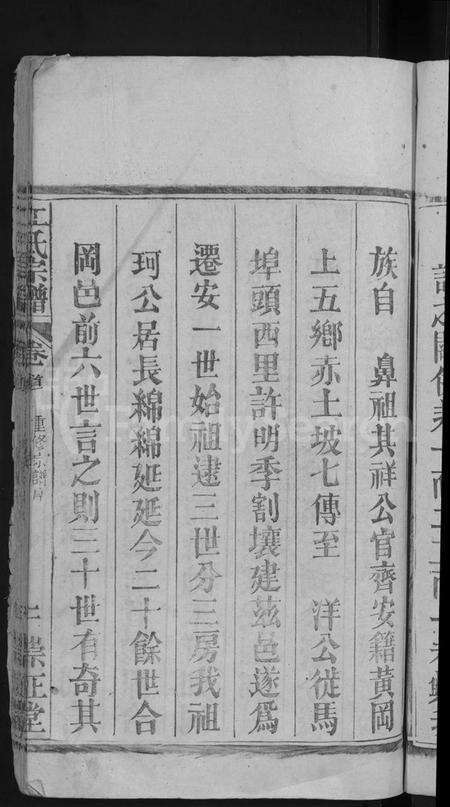 族自　鼻祖其祥公官齊安籍黃岡
上五鄉赤土坡七傳至　洋公從馬
埠頭西里許明季割壤建茲邑遂爲
遷安一世始祖逮三世分三房我祖
珂公居長綿綿延延今二十餘世合
岡邑前六世言之則三十世有奇其
氏宗譜
卷首
重修宗譜序
崇正堂